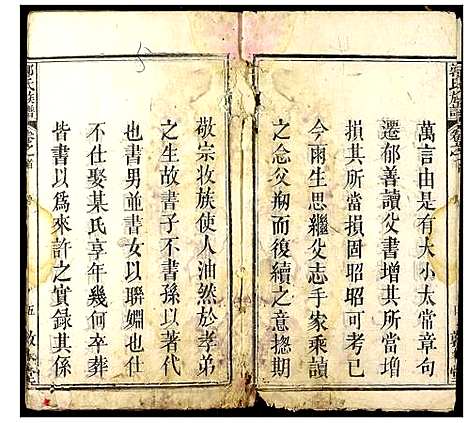 萬言由是有大小太常章句
遷郁善讀父書增其所當增
損其所當損固昭昭可考已
今雨生思繼父志手家乘讀
之念父剏而復續之意揔期
敬宗收族使人油然於孝弟
之生故書子不書孫以著代
也書男並書女以聯婣也書
不仕娶某氏享年幾何卒葬
皆書以爲來許之實錄其係
氏族譜
卷之
五